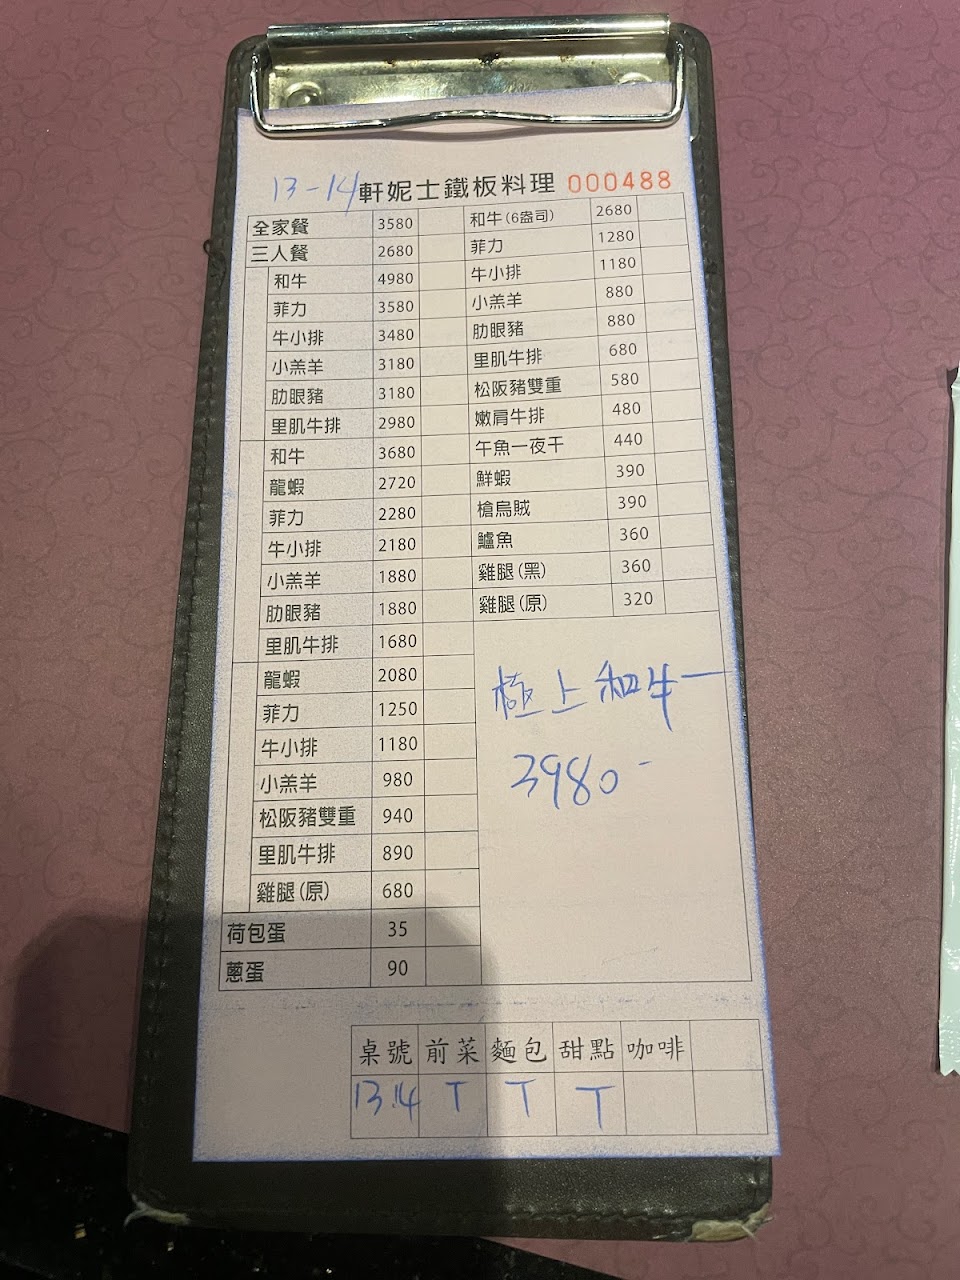 13-14 軒妮士鐵板料理 000488
全家餐 3580
三人餐 2680
和牛 4980
菲力 3580
牛小排 3480
小羔羊 3180
肋眼豬 3180
里肌牛排 2980
和牛 3680
龍蝦 2720
菲力 2280
牛小排 2180
小羔羊 1880
肋眼豬 1880
里肌牛排 1680
龍蝦 2080
菲力 1250
牛小排 1180
小羔羊 980
松阪豬雙重 940
里肌牛排 890
雞腿(原) 680
荷包蛋 35
蔥蛋 90
和牛(6盎司) 2680
菲力 1280
牛小排 1180
小羔羊 880
肋眼豬 880
里肌牛排 680
松阪豬雙重 580
嫩肩牛排 480
午魚一夜干 440
鮮蝦 390
槍烏賊 390
鱸魚 360
雞腿(黑) 360
雞腿(原) 320
極上和牛一
3980-
桌號 前菜 麵包 甜點 咖啡
13.14 T T T